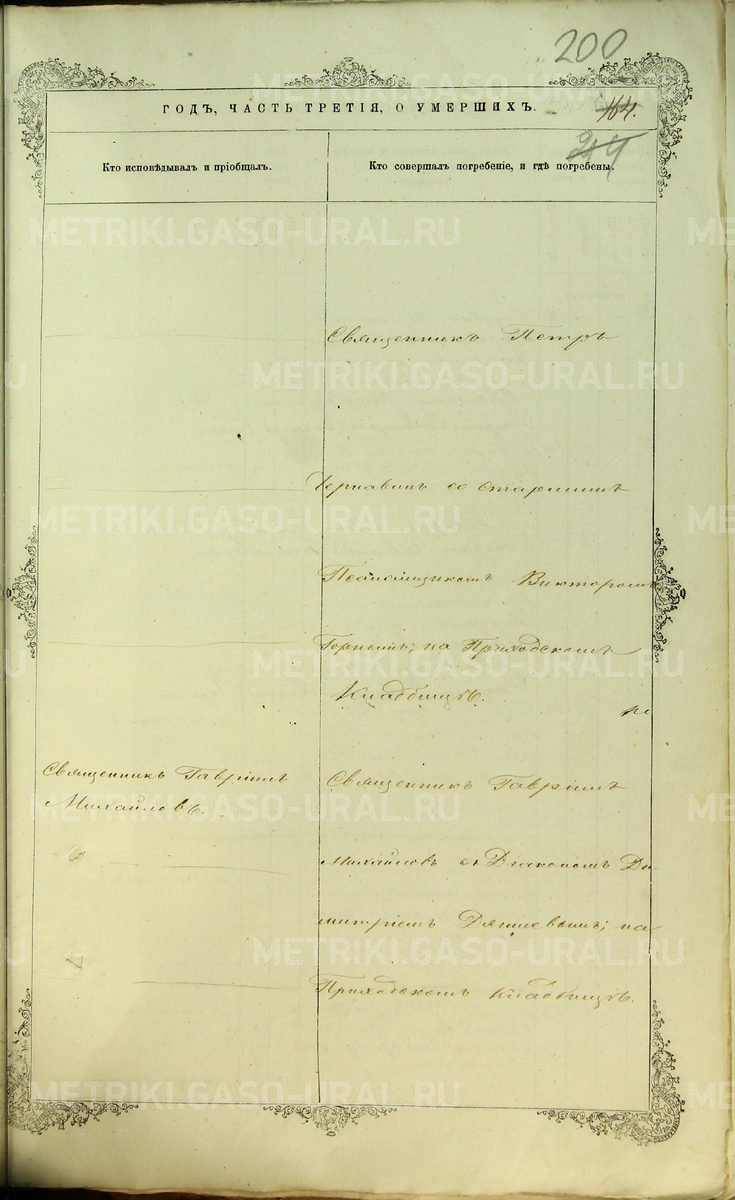 200
ГОДЪ, ЧАСТЬ ТРЕТІЯ, О УМЕРШИХЪ.
164.
Кто исповѣдывалъ и пріобщалъ.
Кто совершалъ погребеніе, и гдѣ погребены.
METRIKI.GASO-URAL.RU
Священникъ Петръ
Чернавинъ со Старшимъ
Виктором
Горнымъ; на Приходскомъ
Кладбищѣ.
Священникъ Гавріилъ
Михайловъ.
Священникъ Гавріилъ
Михайловъ съ Диякономъ Ди
митріемъ на
Приходскомъ Кладбищѣ.